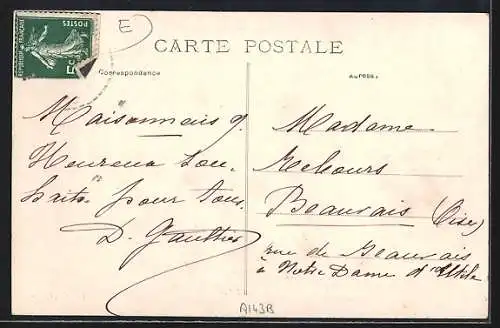 POSTES
REPUBLIQUE FRANÇAISE
5c
E
CARTE POSTALE
Correspondance
ADRESSE
Maisonneuve 9.
Heureux Sou-
haits pour tous.
D. Gauthier
Madame
Beauvais (Oise)
rue de Beauvais
à Notre Dame d
A143B